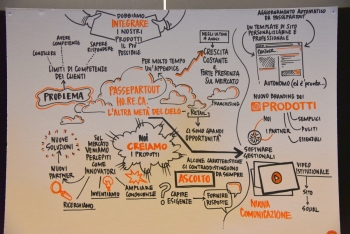 DOBBIAMO
INTEGRARE
I NOSTRI
PRODOTTI
IL PIÙ
POSSIBILE
AVERE
COMPETENZE
CONOSCERE
SAPERE
RISPONDERE
LIMITI DI COMPETENZE
DEI CLIENTI
PROBLEMA
PER MOLTO TEMPO
UN'APPENDICE
PASSEPARTOUT
HO.RE.CA.
L'ALTRA METÀ DEL CIELO
RETAIL
FRANCHISING
NEGLI ULTIMI
4 ANNI
CRESCITA
COSTANTE
FORTE PRESENZA SUL
MERCATO
CI SONO GRANDI
OPPORTUNITÀ
AGGIORNAMENTO AUTOMATICO
DA PASSEPARTOUT
UN TEMPLATE DI SITO
PERSONALIZZABILE E
PROFESSIONALE
AUTONOMO
NUOVO BRANDING DEI
PRODOTTI
NOI
I
PARTNER
SEMPLICI
PULITI
ESSENZIALI
SOFTWARE
GESTIONALI
NUOVE
SOLUZIONI
NUOVI
PARTNER
RICERCHIAMO
SUL
MERCATO
VENIAMO
PERCEPITI
COME
INNOVATORI
INVENTIAMO
NOI
CREIAMO
I PRODOTTI
AMPLIARE
CONOSCENZE
ALCUNE CARATTERISTICHE
CI CONTRADDISTINGUONO
DA SEMPRE
ASCOLTO
CAPIRE
ESIGENZE
FORNIRE
RISPOSTE
VIDEO
ISTITUZIONALE
SITO
SOCIAL
NUOVA
COMUNICAZIONE